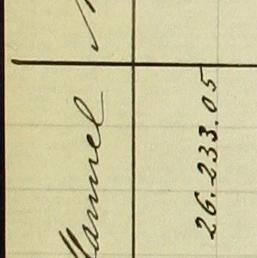 Mannel
26.233.05